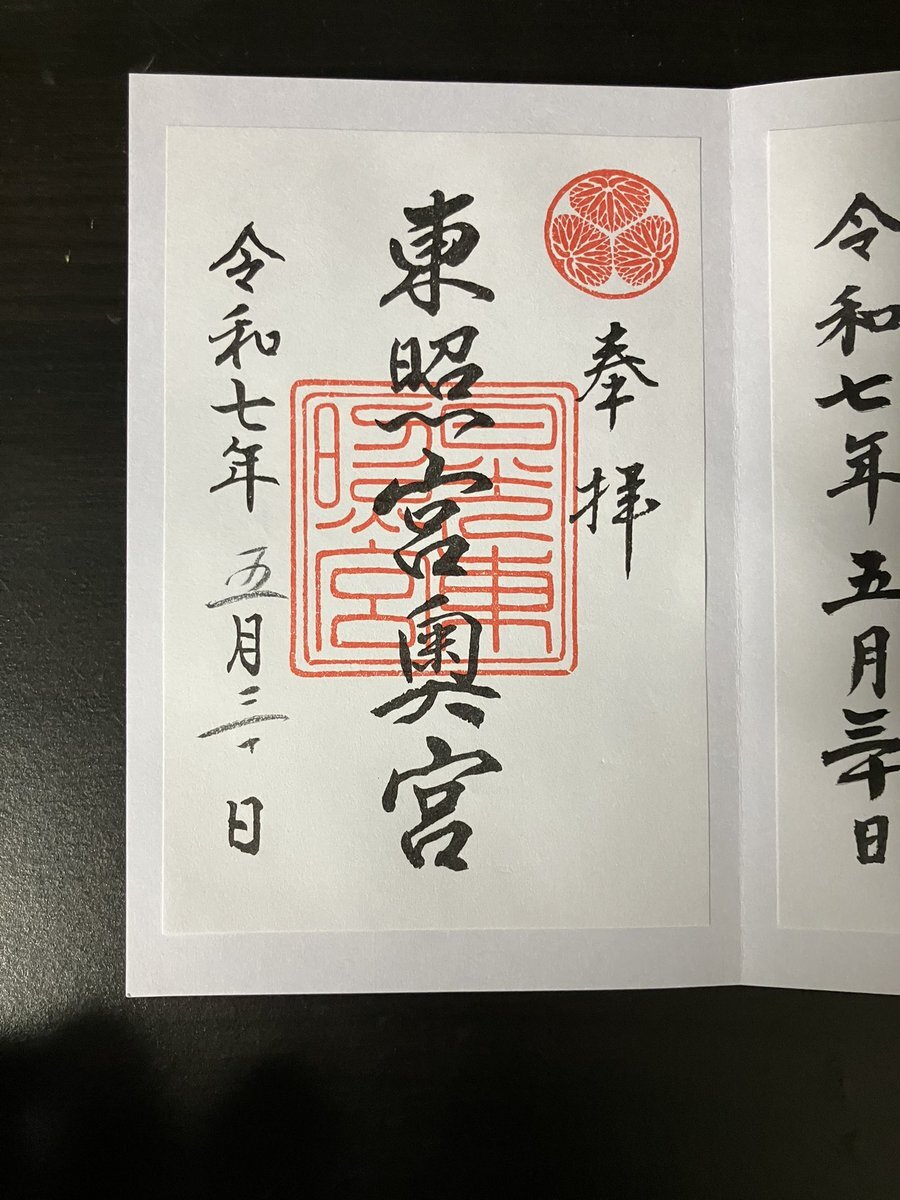 令和七年五月三十日
奉拝
東照宮奥宮
日光東照宮
令和七年五月三十日